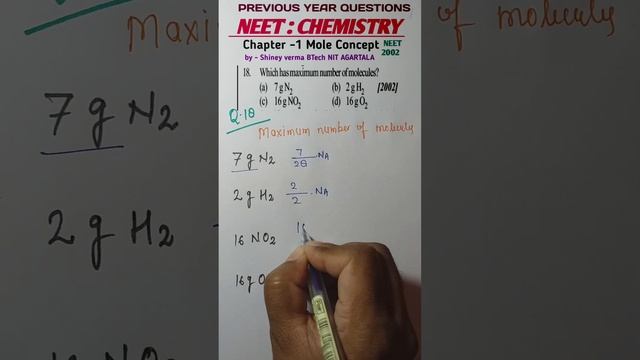 PREVIOUS YEAR QUESTIONS
NEET : CHEMISTRY
Chapter -1 Mole Concept NEET 2002
by - Shiney verma BTech NIT AGARTALA
18. Which has maximum number of molecules?
(a) 7 g N2 (b) 2 g H2 [2002]
(c) 16 g NO2 (d) 16 g O2
Q.18
Maximum number of molecule
7 g N2 7/28 NA
2 g H2 2/2 . NA
16 NO2
16g O
7 g N2
2 g H2